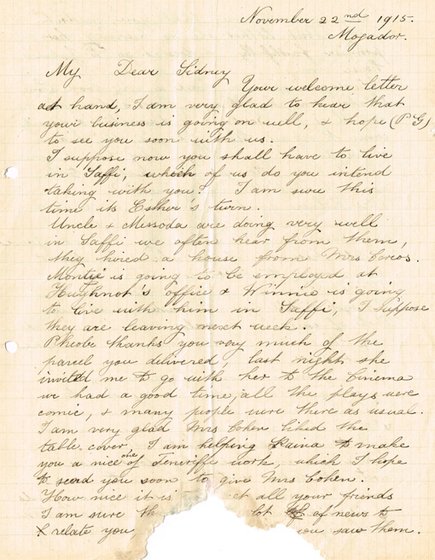 November 22nd 1915.
Mogador.
My Dear Sidney
Your welcome letter
at hand, I am very glad to hear that
your business is going on well, & hope (P G)
to see you soon with us.
I suppose now you shall have to live
in Saffi, which of us do you intend
taking with you? I am sure this
time its Esther's turn.
Uncle & Messoda are doing very well
in Saffi we often hear from them,
they hired a house from Mrs
Montie is going to be employed at
office & Winnie is going
to live with him in Saffi, I suppose
they are leaving next week.
Pheobe thanks you very much of the
parcel you delivered, last night she
invited me to go with her to the Cinema
we had a good time, all the plays were
comic, & many people were there as usual.
I am very glad Mrs Cohen liked the
table cover. I am helping to make
you a nice one of Teneriffe work, which I hope
to send you soon to give Mrs Cohen.
How nice it is all your friends
I am sure of news to
relate you you saw them.